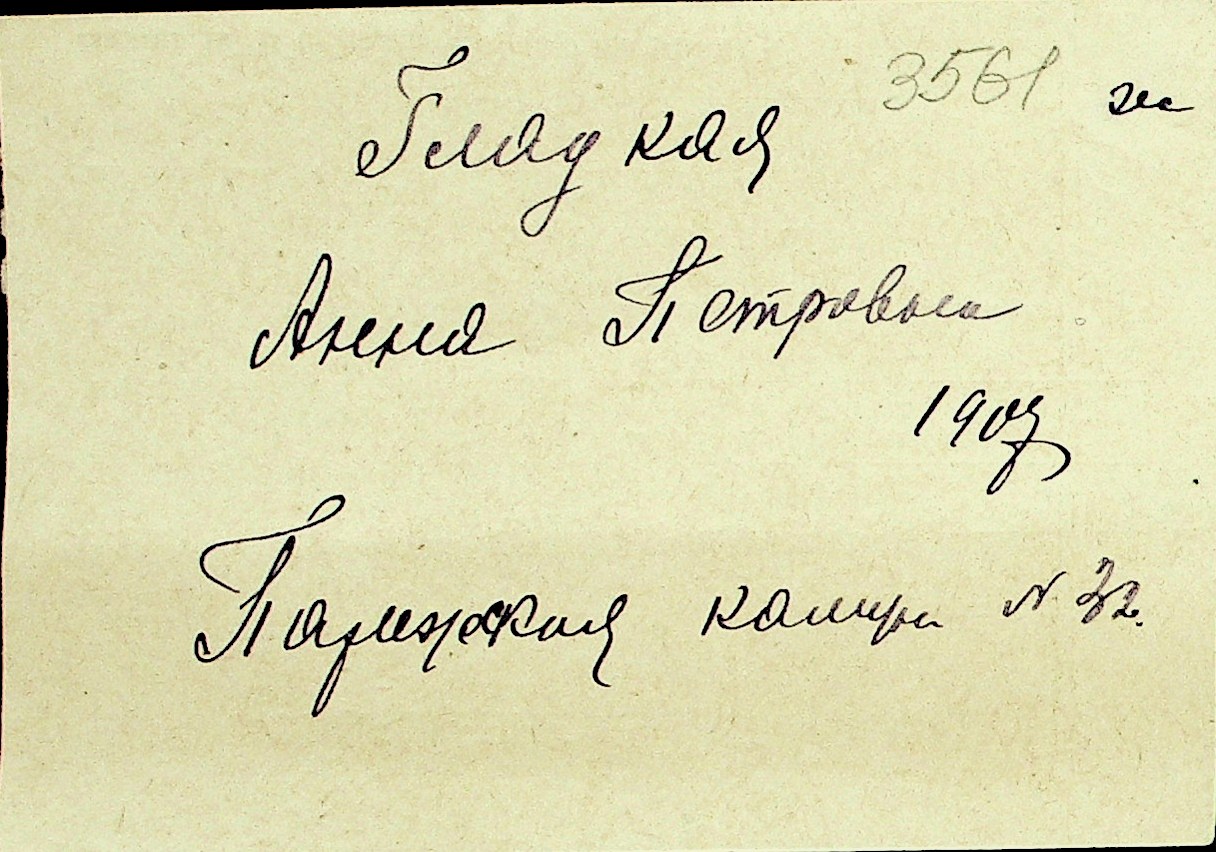 3561 ж
Гладкая
Анна Петровна
1907
Парижская камуна N 32.